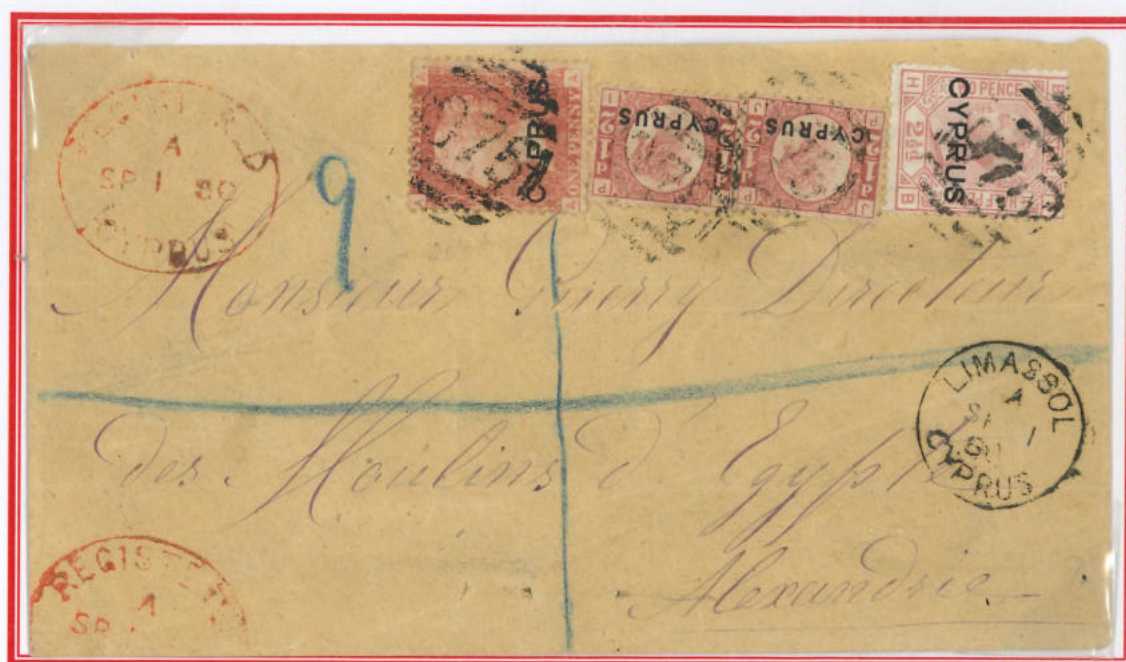 REGISTERED
A
SP 1 80
CYPRUS
9
CYPRUS
ONE PENNY
CYPRUS
CYPRUS
CYPRUS
2½d
Monsieur Pierry Directeur
des Moulins d'Egypte
Alexandrie
LIMASSOL
A
SP 1
80
CYPRUS
REGISTE
A
SP